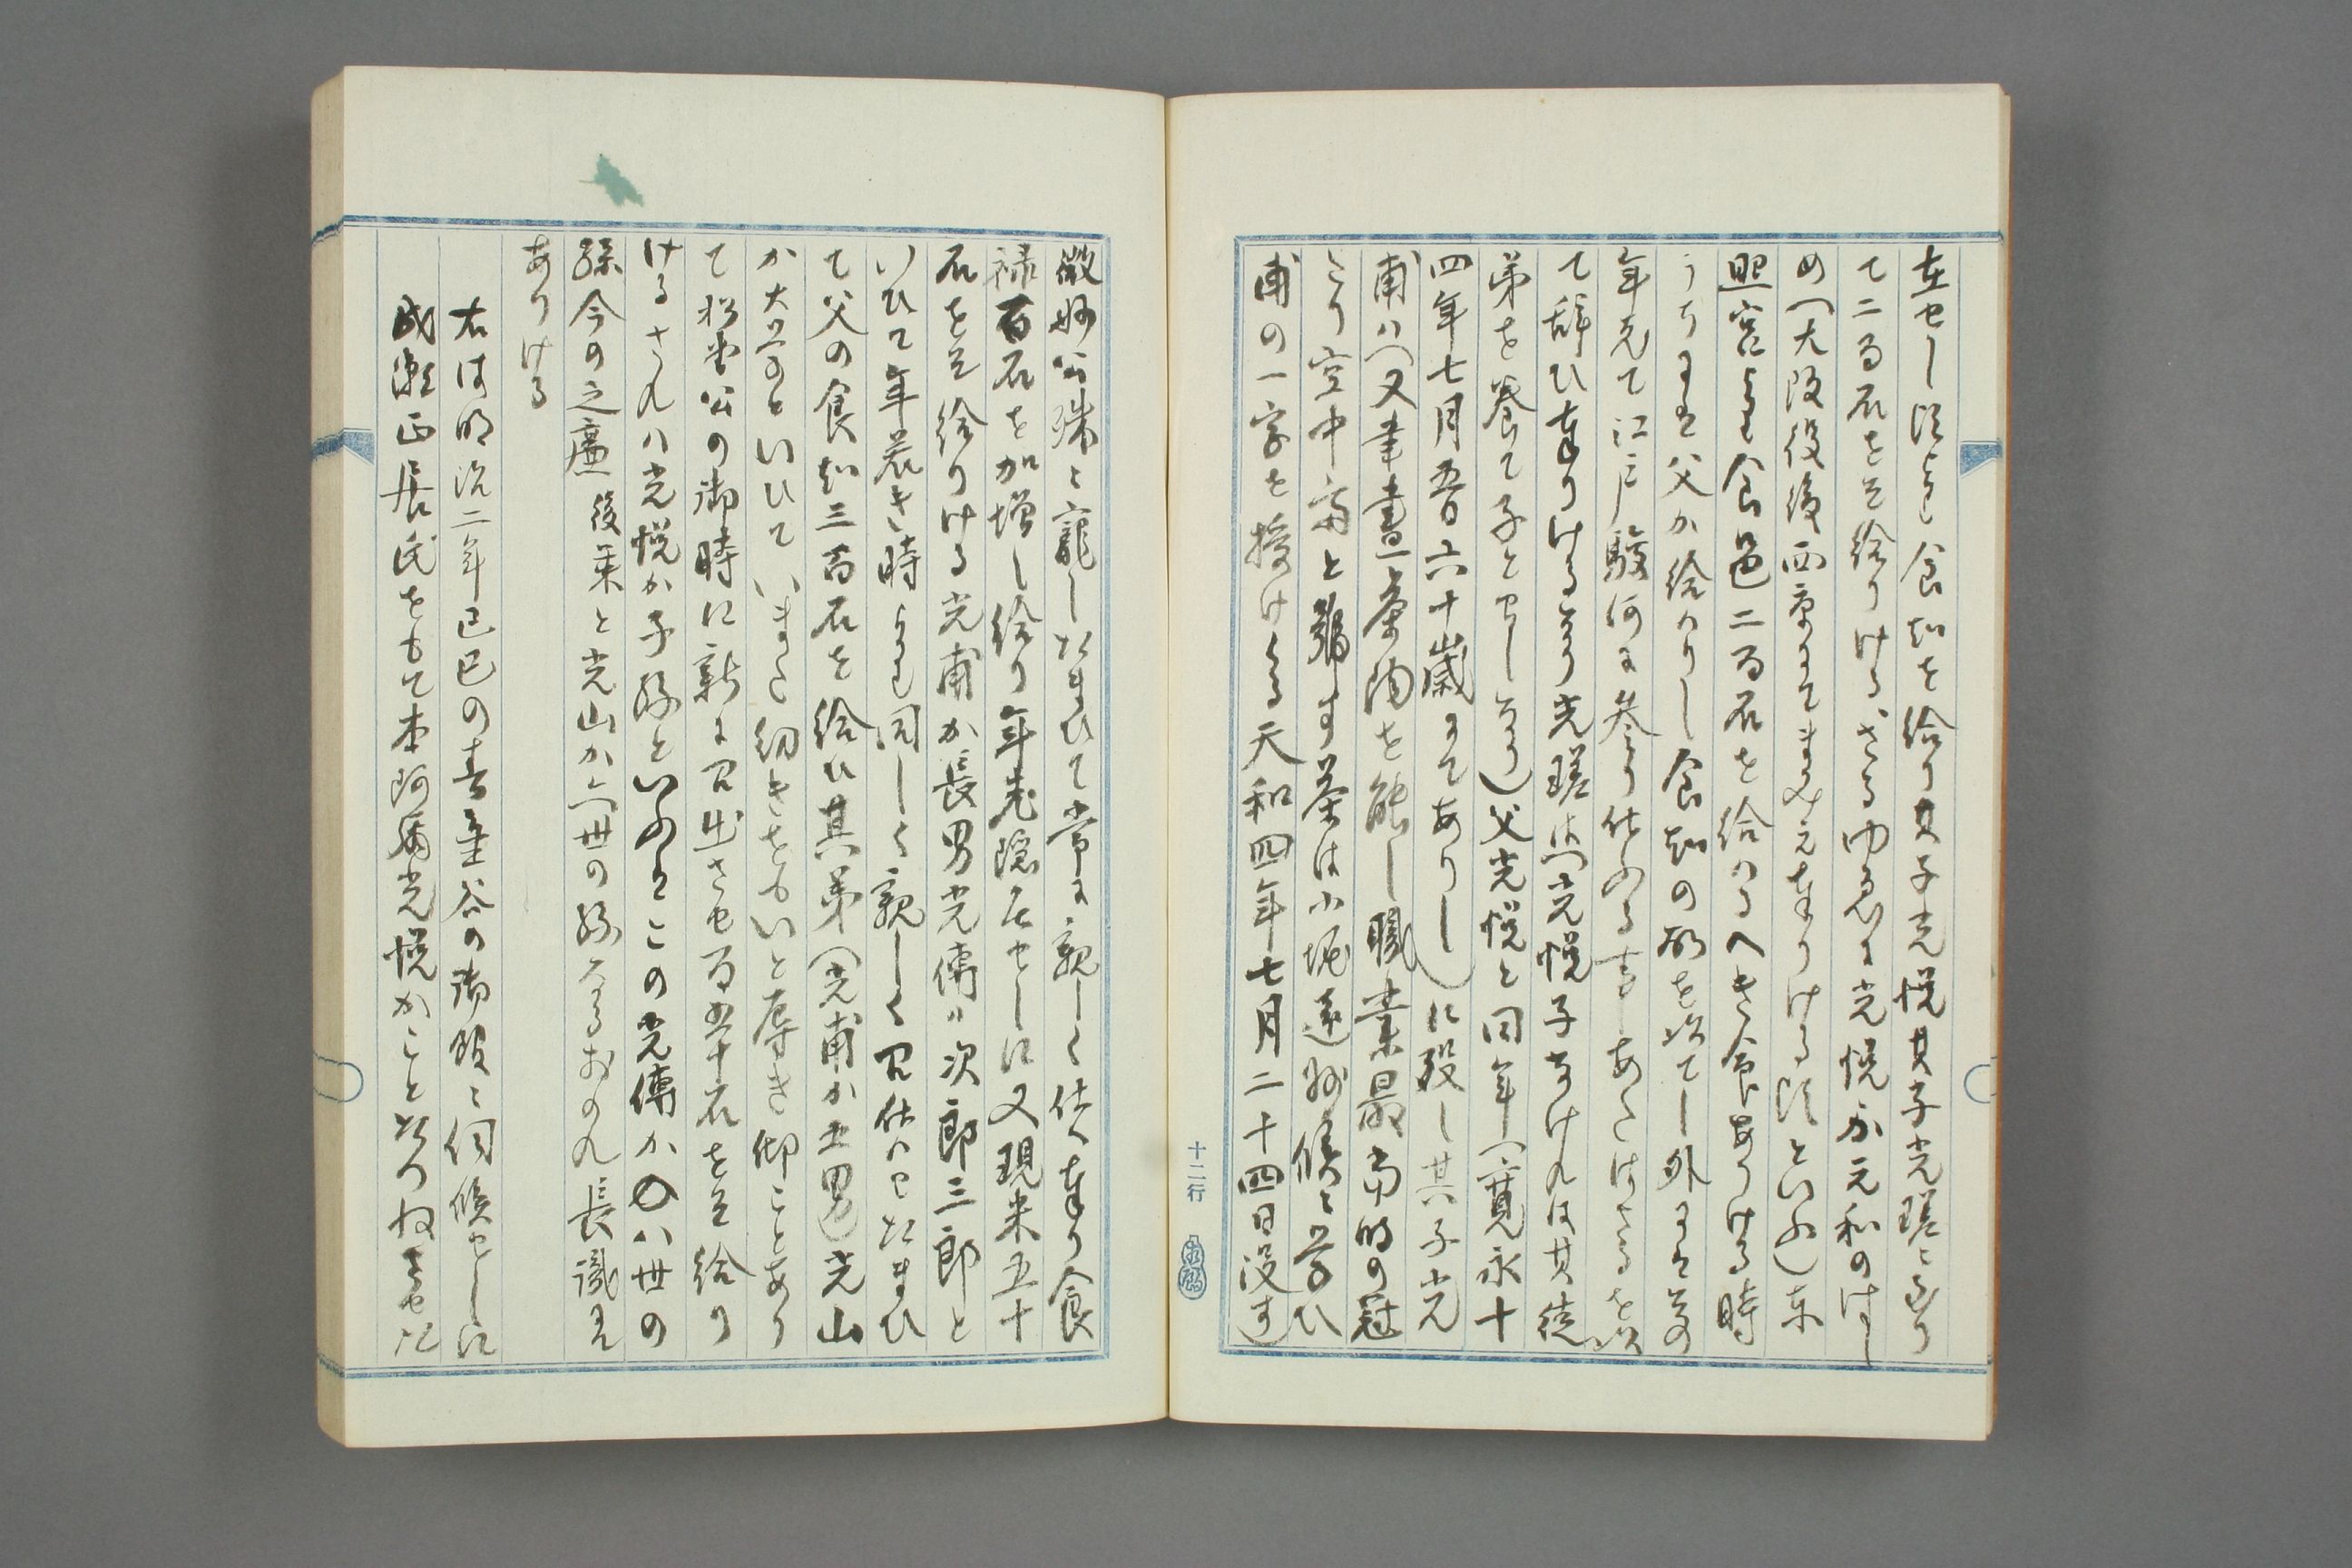 在せし頃より食知を給り其子光悦其子光瑳に至り
て二百石を給りけるさるゆゑに光悦か元和のはし
め(大阪役後西京にてまみえ奉りける頃といふ)東
照宮より食邑二百石を給はるへき命ありける時
うちには父か給はりし食知の所を以てし外には
年老て江戸駿河に参り仕ふる事あたはさるを以
て辞ひ奉りけるなり光瑳は(光悦子なけれは其徒
弟を養て子とせしなり)父光悦と同年(寛永十
四年七月 六十歳にてありし)に歿し其子光
甫は(又筆書茶陶を能し職業最当時の冠
たり空中斎と号す茶は小堀遠州侯に学ひ
甫の一字を授けらる天和四年七月二十四日没す)
微妙公殊に寵したまひて常に親しく仕へ奉り食
禄百石を加増し給り年老隠居せしに又現米五十
石を給りける光甫か長男光傳は次郎三郎と
いひて年若き時より同しく親しく召仕はせたまひ
て父の食知三百石を給ひ其弟(光甫か五男)光山
か大学といひていまた幼きをもいと辱き御ことあり
て松雲公の御時に新に召出させ百五十石を給り
けるされは光悦か子孫といふはこの光傳か八世の
孫今の之廉後栗と光山か六世の孫なるおのれ長識に
ありける
右は明治二年己巳の春 谷の御殿に伺候せしに
成瀬正居氏をもて本阿弥光悦かことたつねさせ
十二行